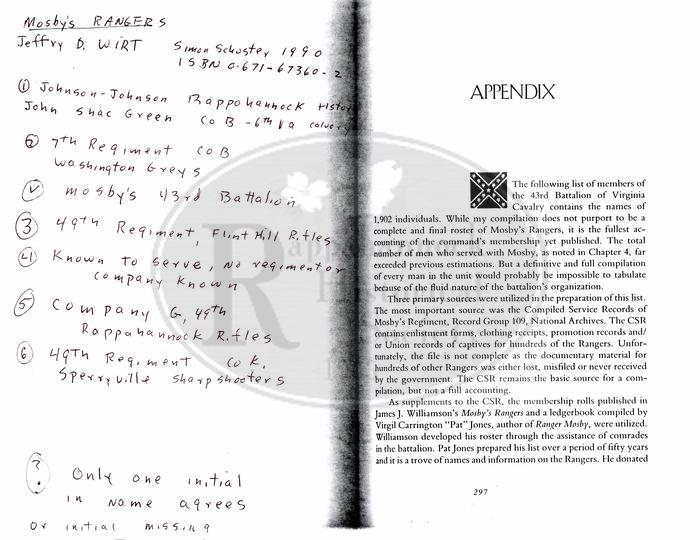 Mosby's RANGERS
Jeffry D. WIRT Simon Schuster 1990
ISBN 0-671-67360-2
① Johnson-Johnson Rappohannock Histor
John Shac Green Co B - 6th Va calvery
② 7th Regiment Co B
Washington Greys
Ⓥ Mosby's 43rd Battalion
③ 49th Regiment, Flint Hill Rifles
④ Known to serve, no regiment or
company known
⑤ Company G, 49th
Rappahannock Rifles
⑥ 49th Regiment Co K,
Sperryville Sharpshooters
? Only one initial
in name agrees
or initial missing
APPENDIX
The following list of members of
the 43rd Battalion of Virginia
Cavalry contains the names of
1,902 individuals. While my compilation does not purport to be a
complete and final roster of Mosby's Rangers, it is the fullest ac-
counting of the command's membership yet published. The total
number of men who served with Mosby, as noted in Chapter 4, far
exceeded previous estimations. But a definitive and full compilation
of every man in the unit would probably be impossible to tabulate
because of the fluid nature of the battalion's organization.
Three primary sources were utilized in the preparation of this list.
The most important source was the Compiled Service Records of
Mosby's Regiment, Record Group 109, National Archives. The CSR
contains enlistment forms, clothing receipts, promotion records and/
or Union records of captives for hundreds of the Rangers. Unfor-
tunately, the file is not complete as the documentary material for
hundreds of other Rangers was either lost, misfiled or never received
by the government. The CSR remains the basic source for a com-
pilation, but not a full accounting.
As supplements to the CSR, the membership rolls published in
James J. Williamson's Mosby's Rangers and a ledgerbook compiled by
Virgil Carrington "Pat" Jones, author of Ranger Mosby, were utilized.
Williamson developed his roster through the assistance of comrades
in the battalion. Pat Jones prepared his list over a period of fifty years
and it is a trove of names and information on the Rangers. He donated
297